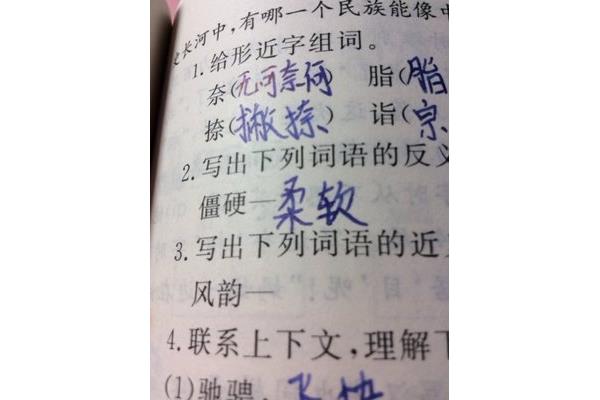 长河中,有哪一个民族能像中
1.给形近字组词。
奈(无可奈何) 脂(脂
捺(撇捺) 诣(宗
2.写出下列词语的反义
僵硬—柔软
3.写出下列词语的近
风韵—
4.联系上下文,理解
(1)驰骋。飞快